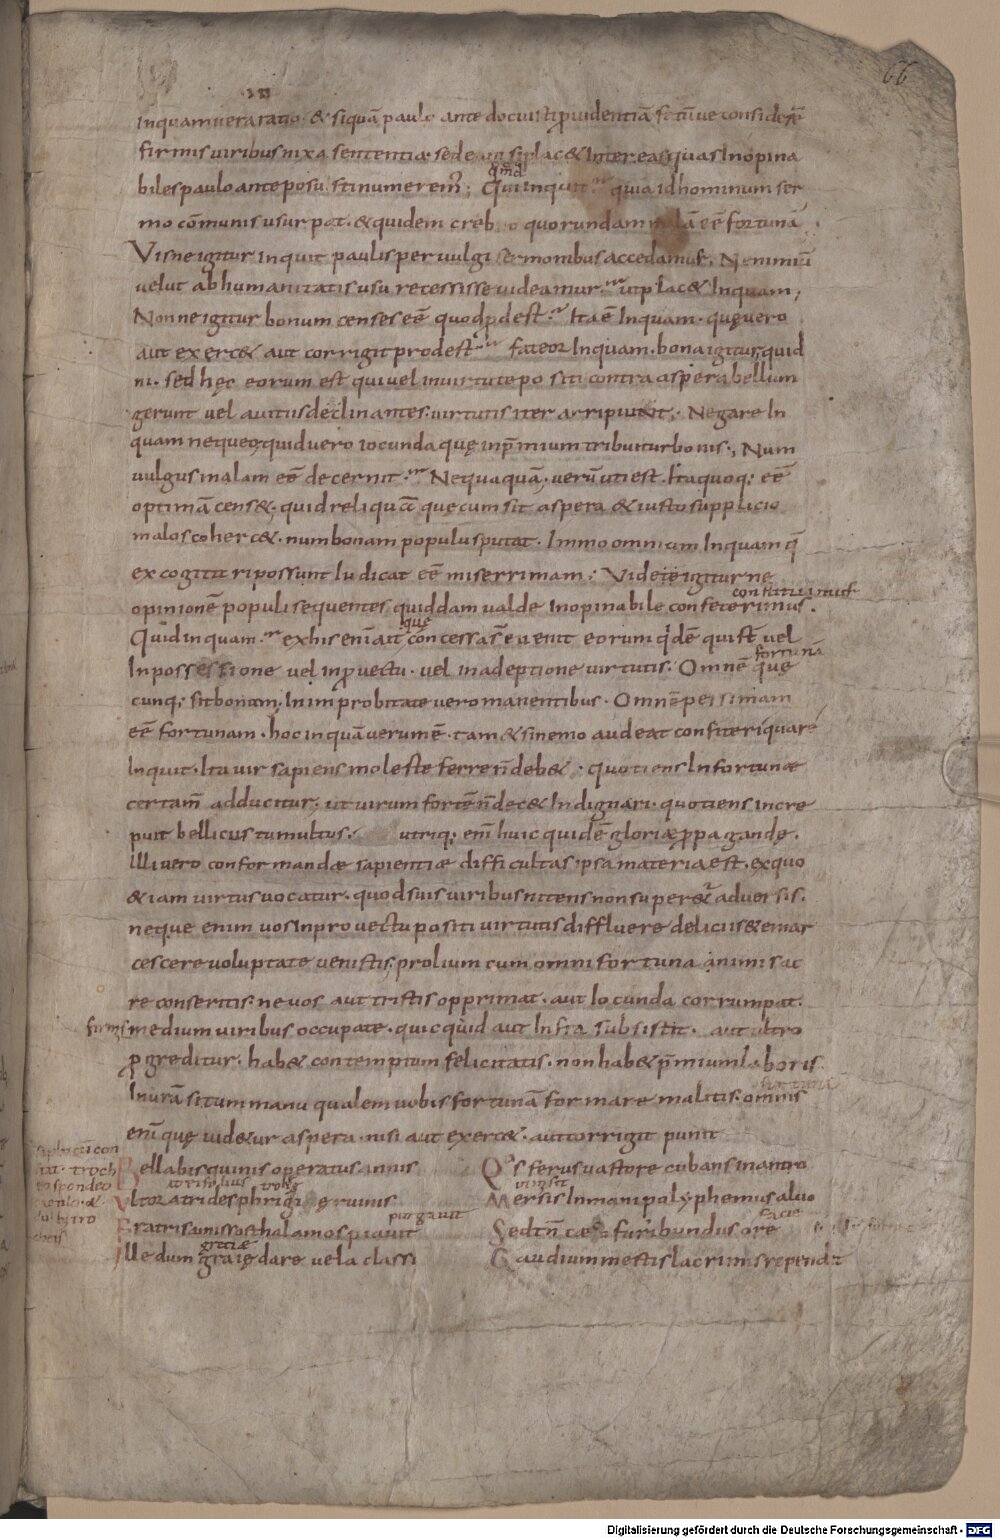 66
inquam vera ratio · & si quā paulo ante docuisti ꝓvidentiā fatūve consideꝝ
firmis viribus nixa sententia · sed eam si placet Inter eas quas Inopina
biles paulo ante posuisti numerem̄ ; Qui inquit quia id hominum ser
mo cōmunis usurpat · & quidem crebro quorundam malā eē fortunā
Visne igitur inquit paulisper vulgi sermonibus accedamus · Ne nimiū
velut ab humanitatis usu recessisse videamur · ut placet Inquam ;
Nonne igitur bonum censes eē quod ꝓdest · Ita ē Inquam · quę vero
aut exercet aut corrigit prodest fateor Inquam · bona igitur quid
ni · sed hęc eorum est qui vel in virtute positi contra aspera bellum
gerunt vel a vitiis declinantes · virtutis iter arripiunt · Negare In
quam nequeo · quid vero iocunda quę in p̄mium tribuitur bonis · Num
vulgus malam eē decernit · Nequaquā · verū uti est · Ita quoq; eē
optimā censet · quid reliqua quę cum sit aspera & iusto supplicio
malos cohercet · num bonam populus putat · Immo omnium Inquam q̄
excogitari possunt Iudicat eē miserrimam ; Videte igitur ne
constituimus
opinionē populi sequentes quiddam valde Inopinabile confecerimus ·
Quid inquam · ex his enī ait quę concessa s̄ evenit eorum qđē qui s̄t vel
fortunā
In possessione vel in ꝓvectu · vel in adeptione virtutis · Omnē quę
cunq; sit bonam · In improbitate vero manentibus · Omnē pessimam
eē fortunam · hoc inquā verum ē · tam & si nemo audeat confiteri quare
Inquit · Ita vir sapiens moleste ferre n̄ debet · quotiens In fortunæ
certam̄ adducitur · ut virum fortē n̄ decet Indignari · quotiens incre
puit bellicus tumultus · utriq; em̄ huic quidē gloriæ ꝓpagandę ·
illi vero conformandæ sapientiæ difficultas ipsa materia est · ex quo
& iam virtus vocatur · quod suis viribus nitens non superet adversis ·
neque enim vos In provectu positi virtutis diffluere deliciis & emar
cescere voluptate venistis · prolium cum omni fortuna animis ac
re conseritis · ne vos aut tristis opprimat · aut Iocunda corrumpat ·
firmis medium viribus occupate · quicquid aut Infra subsistit · aut ultro
ꝓgreditur · habet contemptum felicitatis · non habet p̄mium laboris
fortuna
In vr̄ā situm manu qualem vobis fortunā formare malitis · omnis
eni quę videtur aspera · nisi aut exercet · aut corrigit punit
Bella bis quinis operatus annis
Ultor atrides phrigię ruinis
purgavit
Fratris amissos thalamos piavit
greciæ
Ille dum graię dare vela classi
Q's ferus vasto recubans in antro
Mersit Inmani polyphemus alvo
facie
Sed tn̄ cæco furibundus ore
Gaudium mestis lacrimis rependit
Digitalisierung gefördert durch die Deutsche Forschungsgemeinschaft - DFG